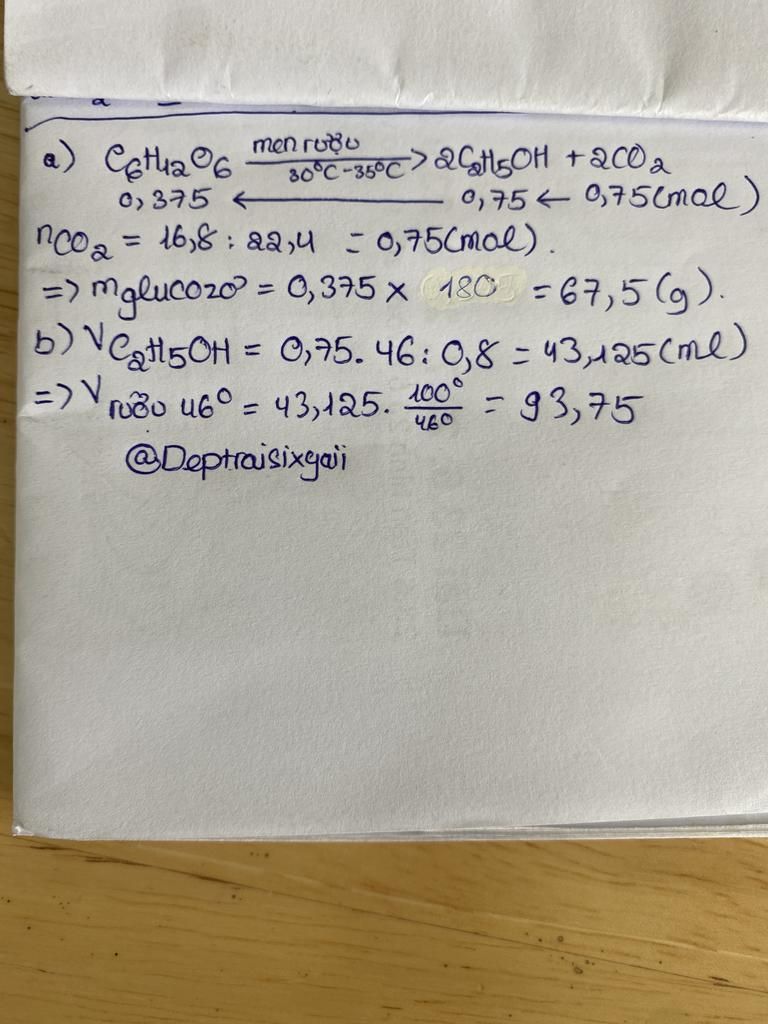 a) C6H12O6 men rượu 30°C-35°C > 2C2H5OH + 2CO2
0,375 ← 0,75 ← 0,75(mol)
nCO2 = 16,8 : 22,4 = 0,75(mol).
=> mglucozơ = 0,375 x 180 = 67,5(g).
b) VC2H5OH = 0,75. 46 : 0,8 = 43,125(ml)
=> Vrượu 46° = 43,125. 100°/46° = 93,75
@Deptraisixgaii